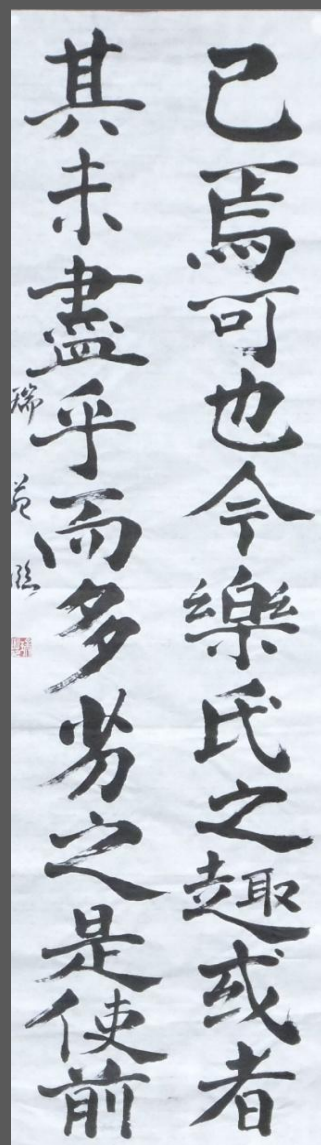 已焉可也今樂氏之趣或者
其未盡乎而多劣之是使前
瑞苑臨